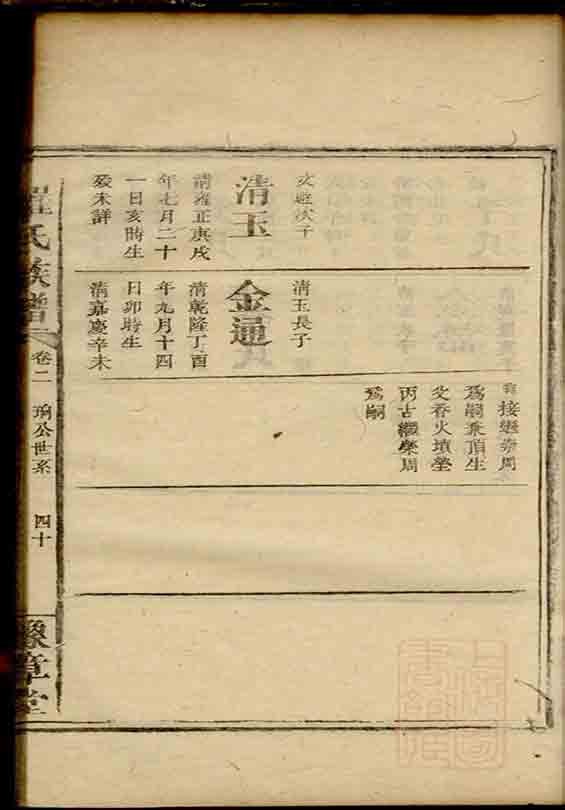 次子
清玉
清雍正庚戌
年七月二十
一日亥時生
歿未詳
清玉長子
金通
清乾隆丁酉
年九月十四
日卯時生
清嘉慶辛未
接繼榮周
爲嗣兼頂生
父香火墳塋
丙古繼榮周
爲嗣
羅氏族譜
卷二
珦公世系
四十
豫章堂
上海圖書館藏